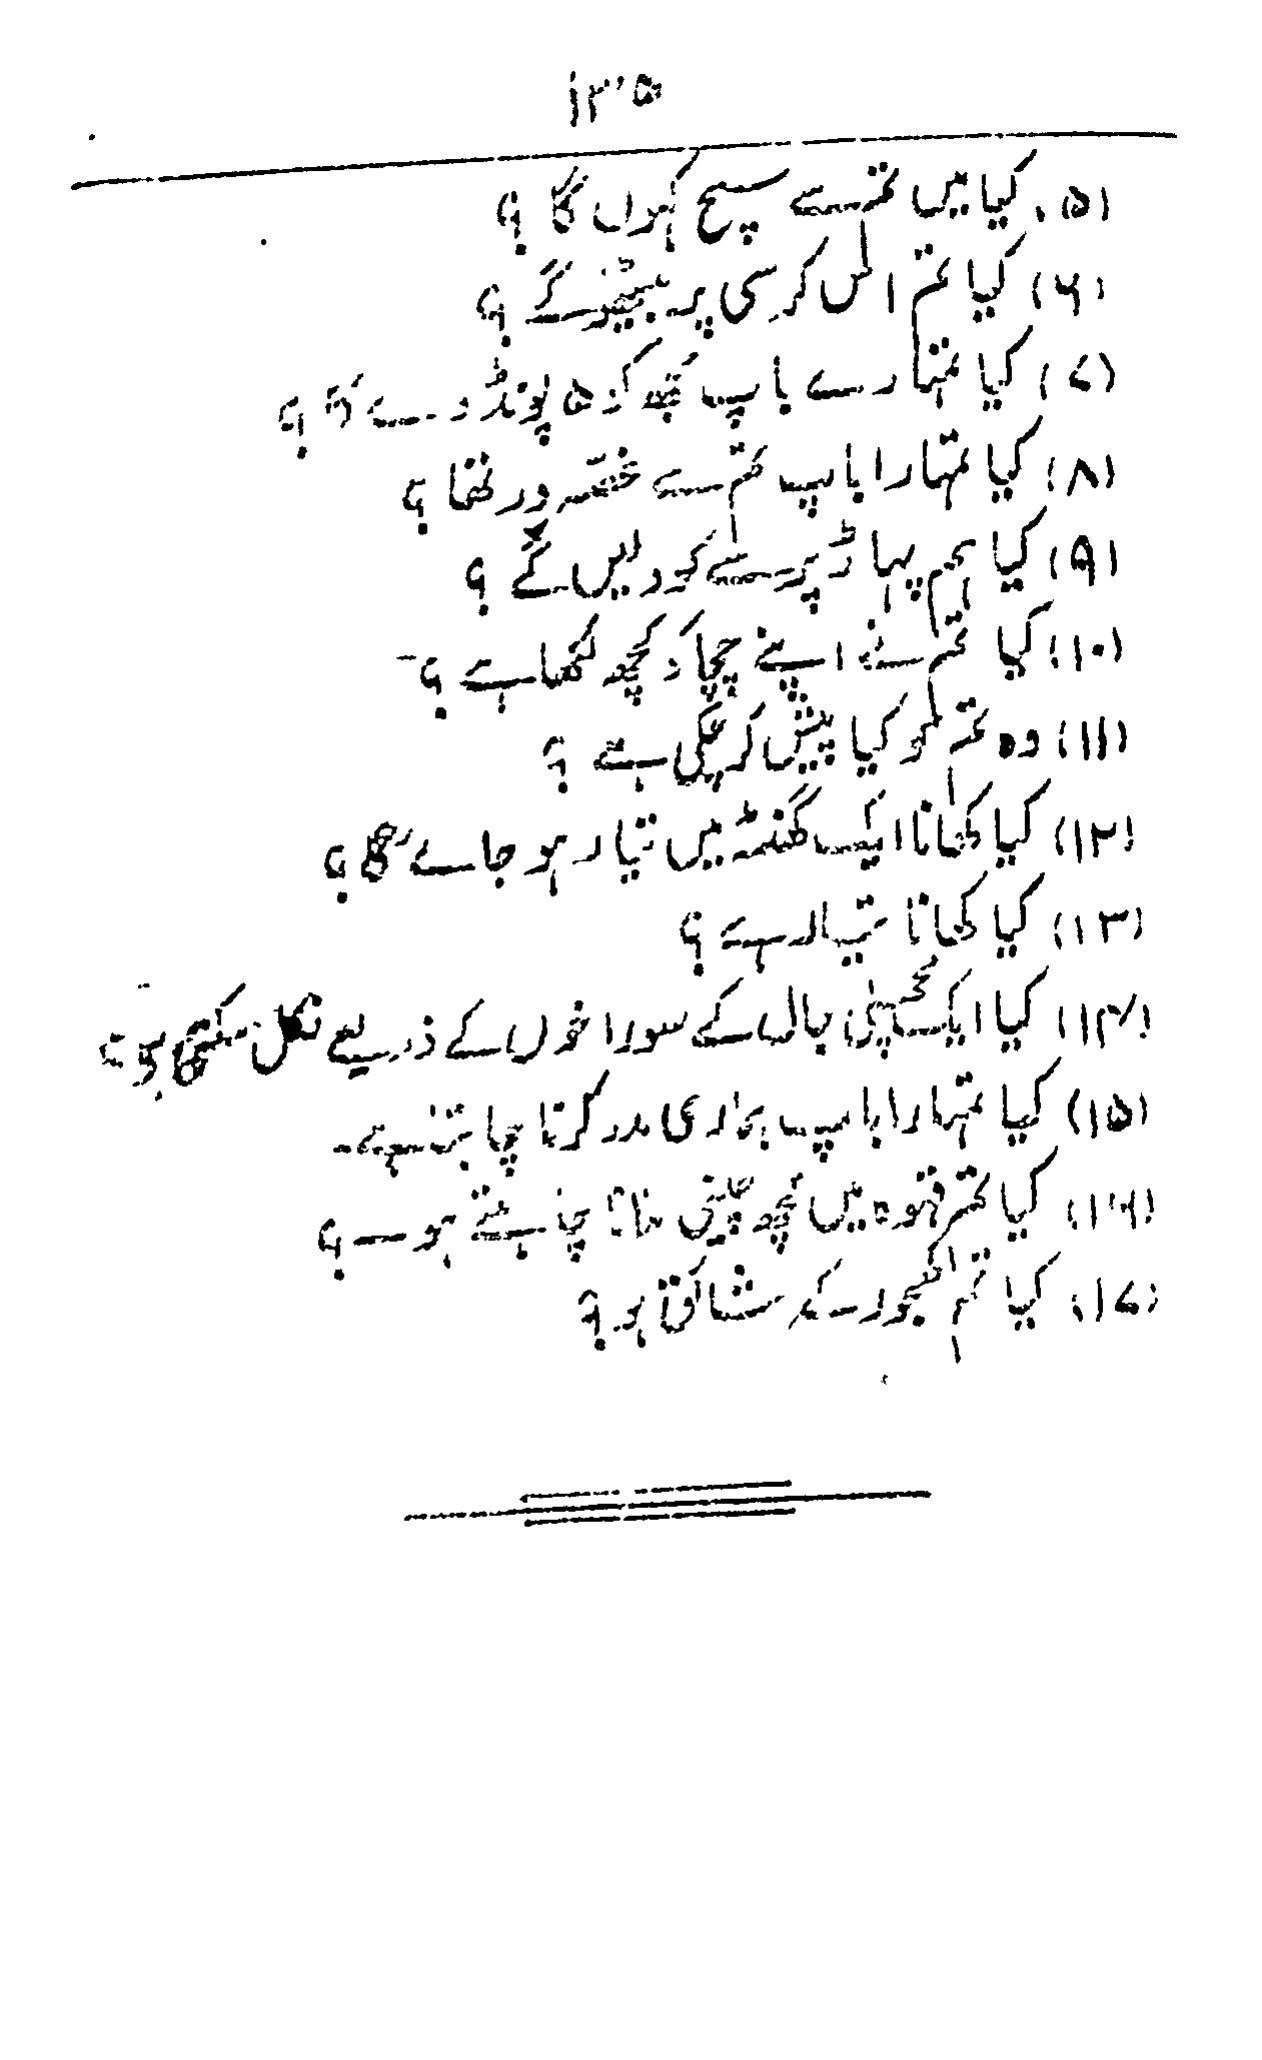 ۱۳۵
(۵) کیا میں تم سے سچ کہوں گا ؟
(۶) کیا تم اس کرسی پر بیٹھو گے ؟
(۷) کیا تمہارے باپ مجھ کو ۵ پونڈ دے گا ؟
(۸) کیا تمہارا باپ تم سے غصّہ ور تھا ؟
(۹) کیا ہم پہاڑ پر سے کودیں گے ؟
(۱۰) کیا تم نے اپنے چچا کو کچھ لکھا ہے ؟-
(۱۱) وہ تم کو کیا پیش کر چکی ہے ؟
(۱۲) کیا کھانا ایک گھنٹہ میں تیار ہو جاے گا ؟
(۱۳) کیا کھانا تیار ہے ؟
(۱۴) کیا ایک مچھلی جال کے سوراخوں کے ذریعے نکل سکتی ہے ؟
(۱۵) کیا تمہارا باپ ہماری مدد کرنا چاہتا ہے-
(۱۶) کیا تم قہوہ میں کچھ چینی ملانا چاہتے ہو- ؟
(۱۷) کیا تم کھجور کے شائق ہو ؟